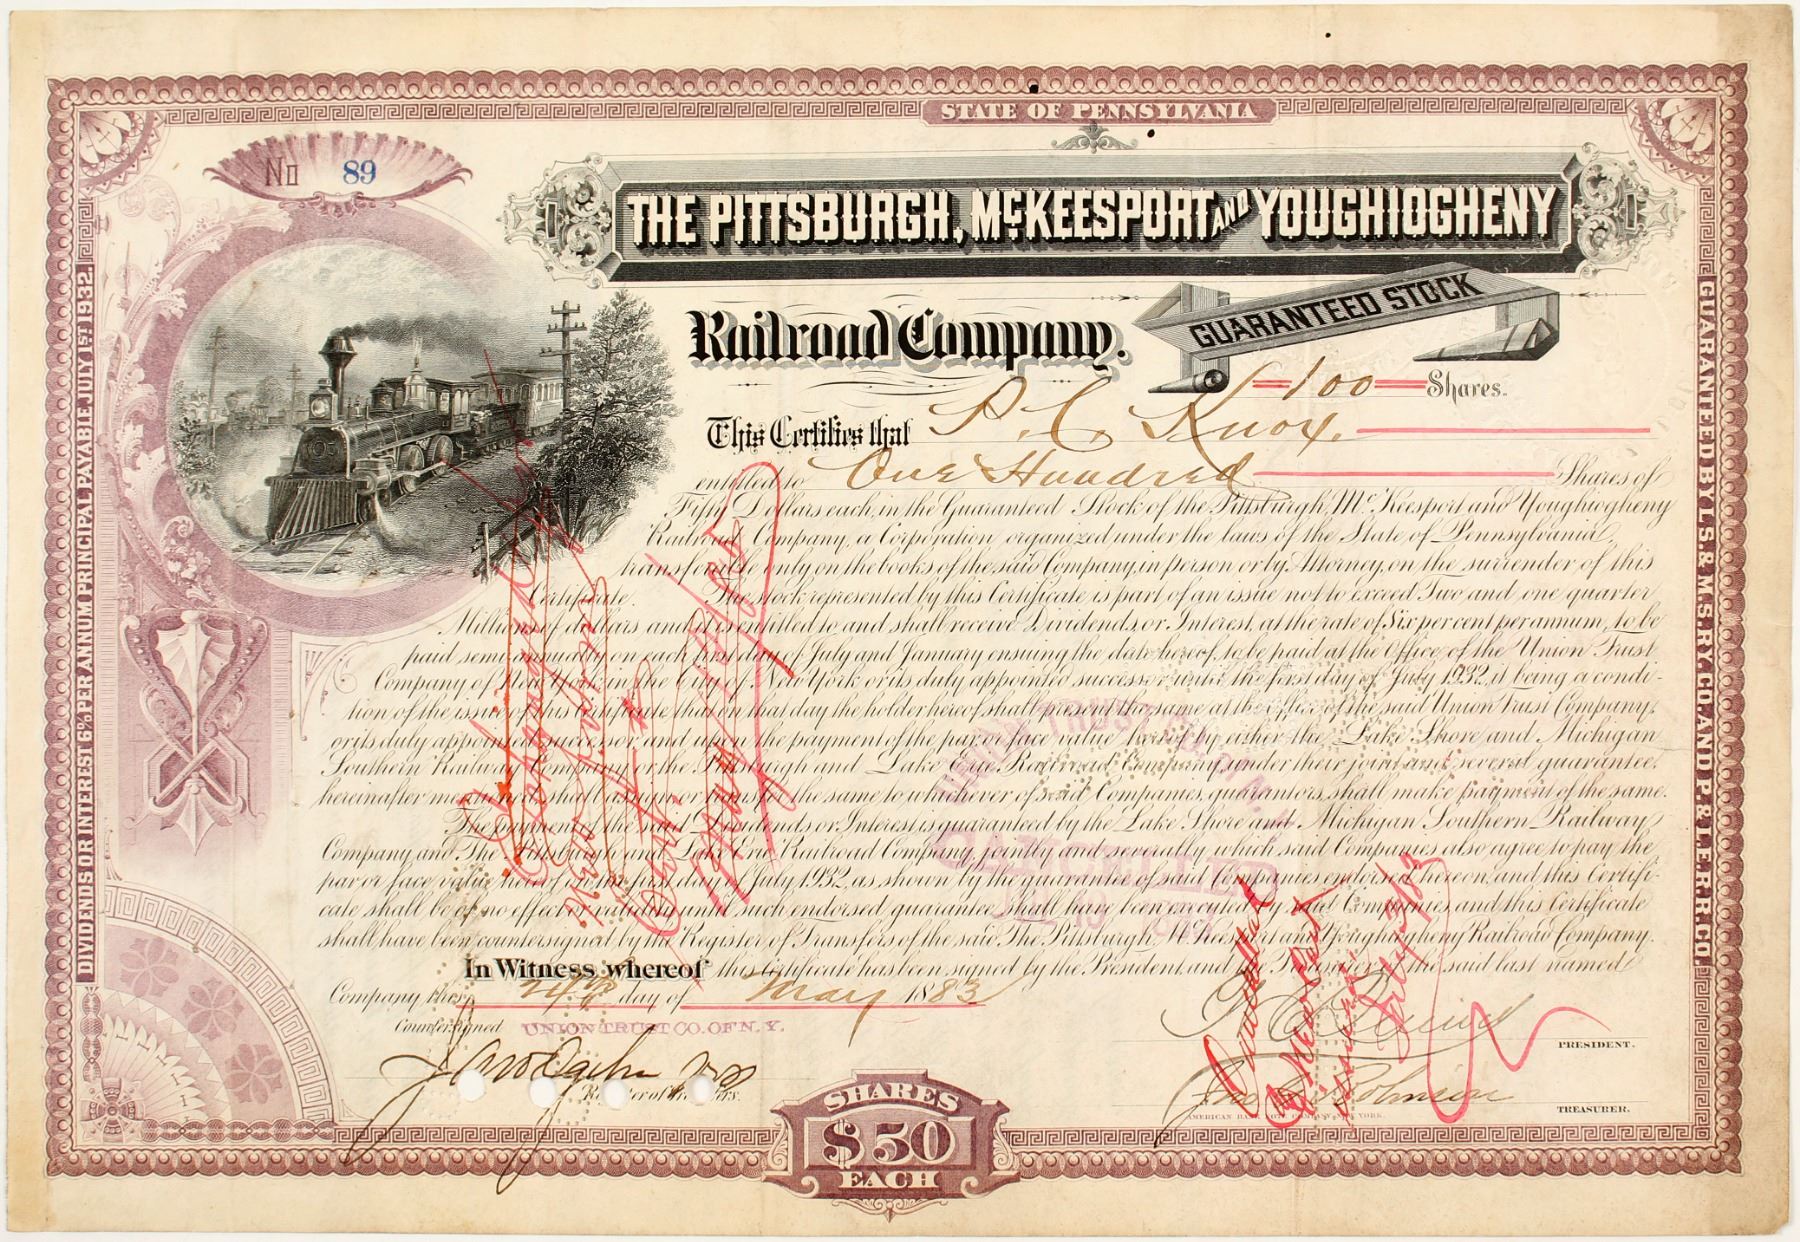 STATE OF PENNSYLVANIA
No 89
THE PITTSBURGH, McKEESPORT AND YOUGHIOGHENY
Railroad Company.
GUARANTEED STOCK
100 Shares.
This Certifies that P. C. Knox.
entitled to One Hundred Shares of
Fifty Dollars each, in the Guaranteed Stock of the Pittsburgh, McKeesport and Youghiogheny
Railroad Company, a Corporation organized under the laws of the State of Pennsylvania,
transferable only on the books of the said Company, in person or by Attorney, on the surrender of this
Certificate. The stock represented by this Certificate is part of an issue not to exceed Two and one quarter
Millions of dollars and it is entitled to and shall receive Dividends, or Interest, at the rate of Six per cent per annum, to be
paid semi-annually on each first day of July and January ensuing the date hereof, to be paid at the Office of the Union Trust
Company of New York in the City of New York or its duly appointed successor until the first day of July 1932, it being a condi-
tion of the issue of this Certificate that on that day the holder hereof shall present the same at the office of the said Union Trust Company,
or its duly appointed successor, and upon the payment of the par or face value hereof by either the Lake Shore and Michigan
Southern Railway Company or the Pittsburgh and Lake Erie Railroad Company, under their joint and several guarantee,
hereinafter mentioned, shall assign or transfer the same to whichever of said Companies, guarantors, shall make payment of the same.
The payment of the said Dividends or Interest is guaranteed by the Lake Shore and Michigan Southern Railway
Company, and The Pittsburgh and Lake Erie Railroad Company, jointly and severally, which said Companies also agree to pay the
par or face value hereof on the first day of July 1932, as shown by the guarantee of said Companies endorsed hereon, and this Certifi-
cate shall be of no effect or validity until such endorsed guarantee shall have been executed by said Companies, and this Certificate
shall have been countersigned by the Register of Transfers of the said The Pittsburgh, McKeesport and Youghiogheny Railroad Company.
In Witness whereof this Certificate has been signed by the President, and the Treasurer of the said last named
Company this 24th day of May 1883
Countersigned UNION TRUST CO. OF N.Y.
Register of Transfers.
PRESIDENT.
Jno. G. Robinson
TREASURER.
AMERICAN BANK NOTE COMPANY, NEW YORK.
SHARES
$50
EACH
DIVIDENDS OR INTEREST 6% PER ANNUM PRINCIPAL PAYABLE JULY 1ST 1932.
GUARANTEED BY L.S. & M.S. RY. CO. AND P. & L.E. R.R. CO.
UNION TRUST CO. OF N.Y.
CANCELLED
Cancelled
July 3/83